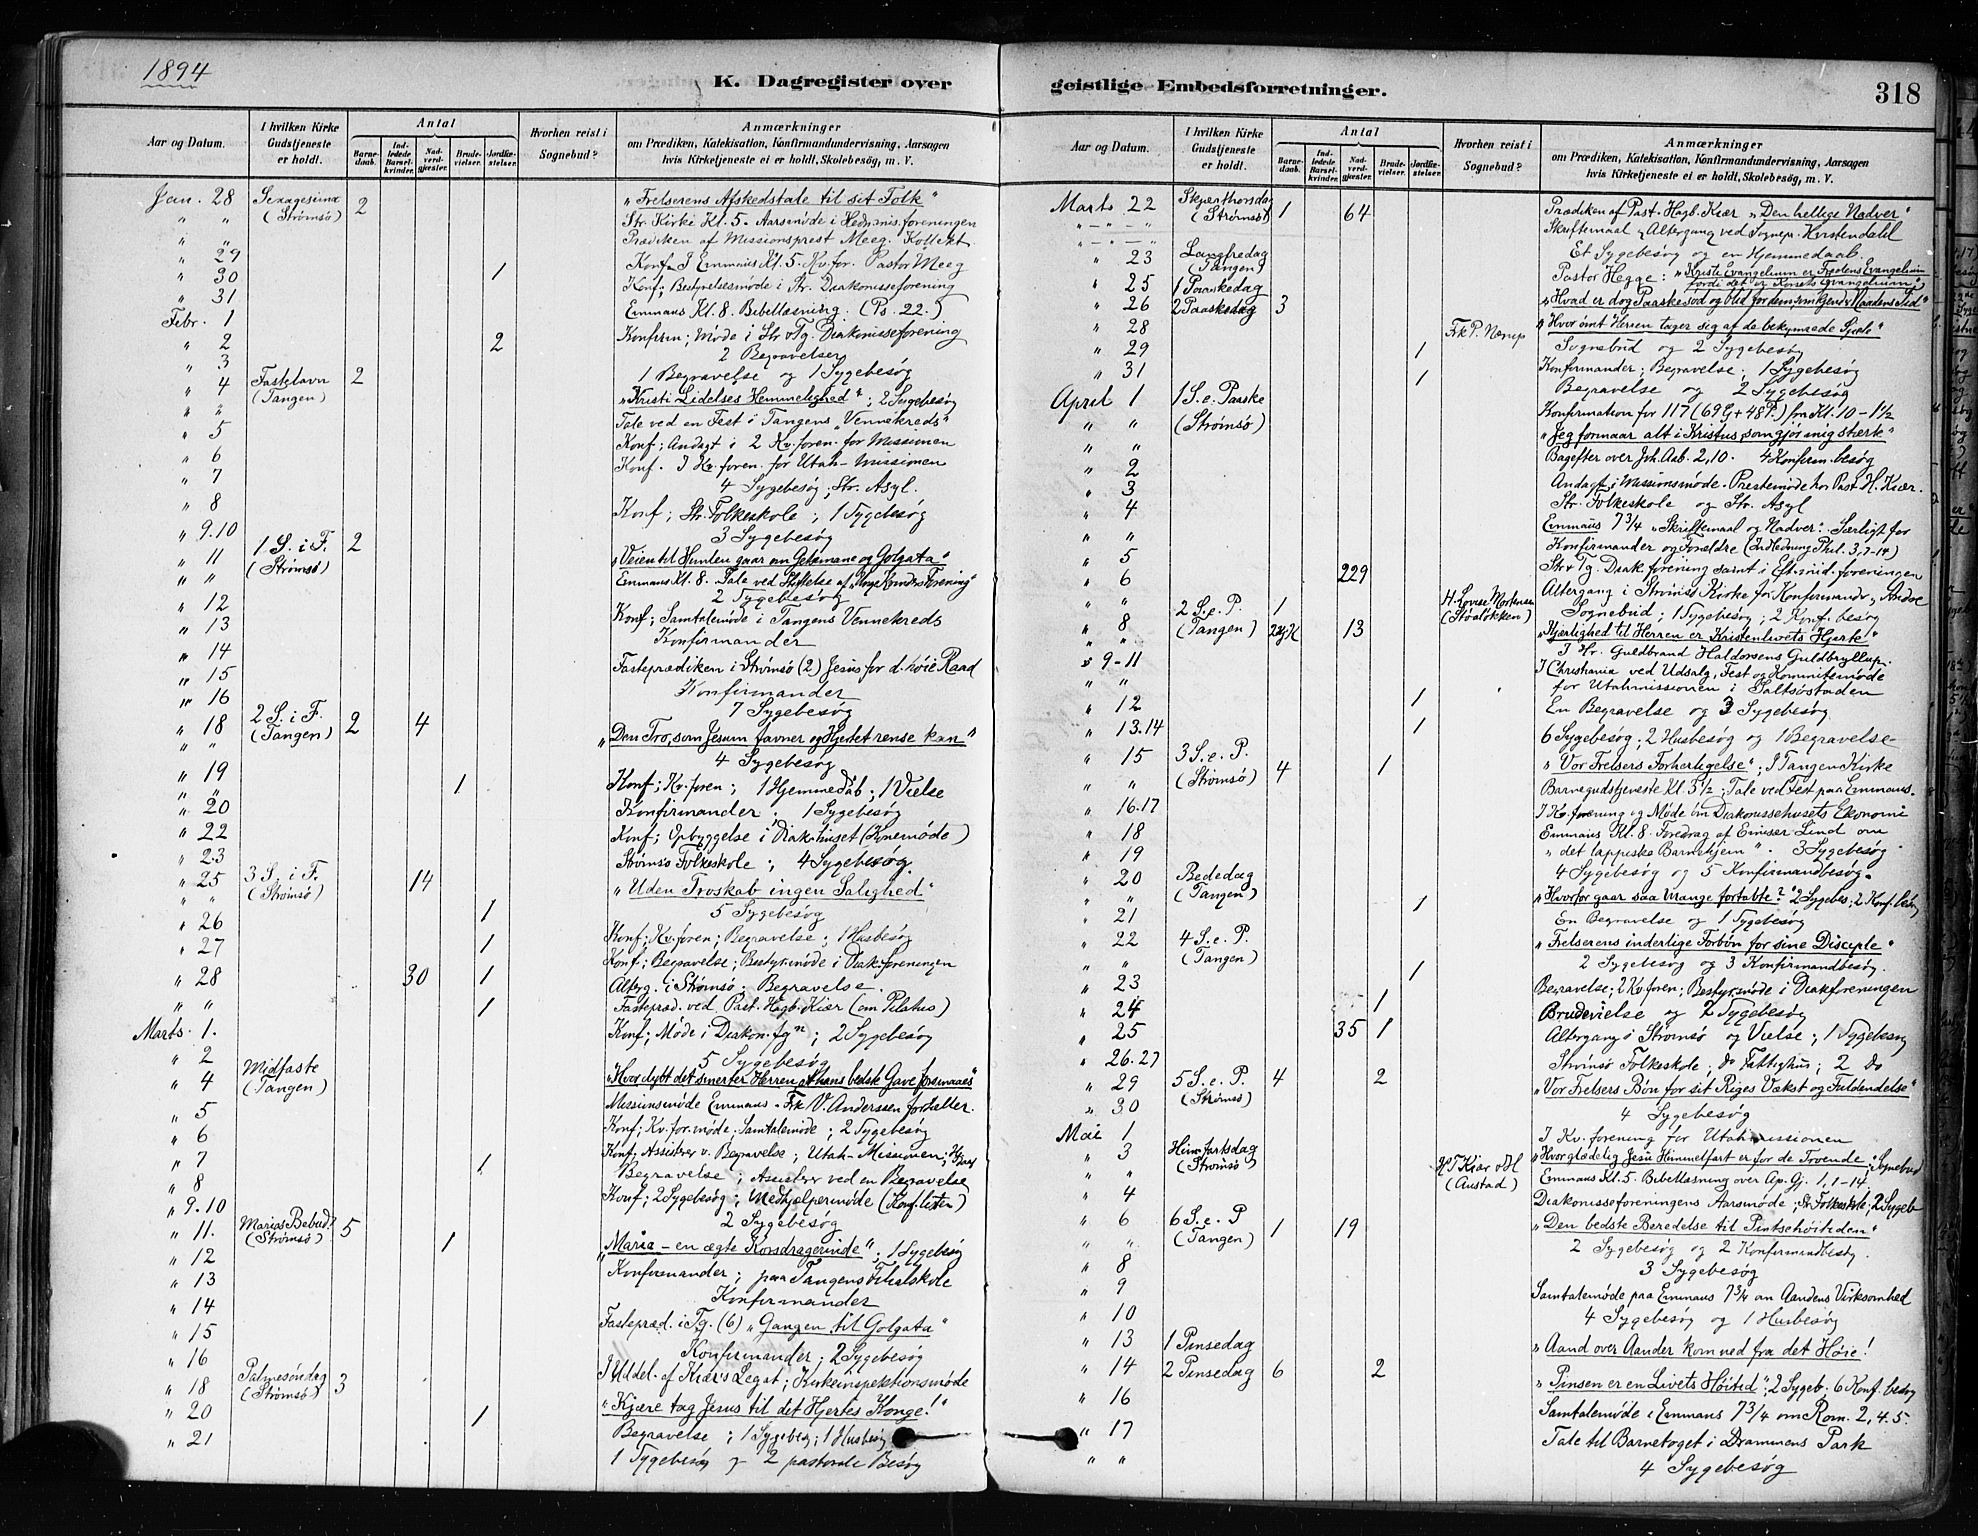 1894
K. Dagregister over
Aar og Datum.
I hvilken Kirke Gudstjeneste er holdt.
Antal
Barnedaab.
Indledede Barselkvinder.
Nadverdgjæster.
Brudevielser.
Jordfæstelser.
Hvorhen reist i Sognebud?
Anmærkninger
om Prædiken, Katekisation, Konfirmandundervisning, Aarsagen
hvis Kirketjeneste ei er holdt, Skolebesøg, m. V.
Jan. 28 Sexagesima 2 "Frelserens Afskedstale til sit Folk"
" " (Strømsø) Str. Kirke Kl. 5. Aarsmøde i Hedn.mis.foreningen
" " Prædiken af Missionsprest Meeg. Kollekt
" 29 Konf. I Emmaus Kl. 5. Kv. for. Pastor Meeg
" 30 1 Konf; Bestyrelsesmøde i Str. Diakonisseforening
" 31 Emmaus Kl. 8. Bibellæsning. (Ps. 22.)
Febr. 1 Konfirm; Møde i Str. & Tg. Diakonisseforening
" 2 2 2 Begravelser
" 3 1 Begravelse og 1 Sygebesøg
" 4 Fastelavn 2 "Kristi Lidelses Hemmelighed"; 2 Sygebesøg
" " (Tangen) Tale ved en Fest i Tangens "Vennekreds"
" 5 Konf; Andagt i 2 Kv. foren. for Missionen
" 6 Konf. I Kv. foren. for Utah-Missionen
" 7 4 Sygebesøg; Str. Asyl.
" 8 Konf; Str. Folkeskole; 1 Sygebesøg
" 9.10 3 Sygebesøg
" 11 1 S. i F. 2 "Veien til Himlen gaar om Getsemane og Golgata"
" " (Strømsø) Emmaus Kl. 8. Tale ved Stiftelse af "Unge Kvinders Forening"
2 Sygebesøg
" 12 Konf; Samtalemøde i Tangens Vennekreds
" 13 Konfirmander
" 14 Fasteprædiken i Strømsø (2) Jesus for d. høie Raad
" 15 Konfirmander
" 16 7 Sygebesøg
" 18 2 S. i F. 2 4 "Den Tro, som Jesum favner og Hjertet rense kan"
" " (Tangen) 4 Sygebesøg
" 19 1 Konf; Kv. foren; 1 Hjemmedaab; 1 Vielse
" 20 Konfirmander. 1 Sygebesøg
" 22 Konf; Opbyggelse i Diak.huset (Konemøde)
" 23 Strømsø Folkeskole; 4 Sygebesøg
" 25 3 S. i F. 14 "Uden Troskab ingen Salighed"
" " (Strømsø) 5 Sygebesøg
" 26 1 Konf; Kv. foren; Begravelse; 1 Husbesøg
" 27 1 Konf; Begravelse; Bestyr.møde i Diak.foreningen
" 28 30 1 Alterg. i Strømsø; Begravelse.
" " 1 Fastepræd. ved Past. Hagb. Kiær (om Pilatus)
Marts 1. Konf; Møde i Diakon. fgn; 2 Sygebesøg
" 2 5 Sygebesøg
" 4 Midfaste "Hvor dybt det smerter Herren, at hans bedste Gave forsmaaes"
(Tangen) Missionsmøde Emmaus. Frk V. Anderssen fortaller.
" 5 Konf; Kv. for. møde; Samtalemøde; 2 Sygebesøg
" 6 Konf; Assisterer v. Begravelse; Utah-Missionen;
" 7 1 Begravelse; Assisterer ved en Begravelse
" 8 Konf; 2 Sygebesøg; Medhjælpermøde (Konf. listen)
" 9.10 2 Sygebesøg
" 11. Marias Bebud. 5 1 "Maria – en ægte Korsdragerinde"; 1 Sygebesøg
(Strømsø)
" 12 Konfirmander; paa Tangens Filialskole
" 13 Konfirmander
" 14 Fastepræd. i Tg. (6) "Gangen til Golgata"
" 15 Konfirmander; 2 Sygebesøg
" 16 I Uddel. af Kiær's Legat; Kirkeinspektionsmøde
" 18 Palmesøndag 3 "Kjære tag Jesus til det Hjertes Konge!"
(Strømsø)
" 20 1 Begravelse; 1 Sygebesøg; 1 Husbesøg
" 21 1 Sygebesøg og 2 pastorale Besøg
geistlige Embedsforretninger.
318
Aar og Datum.
I hvilken Kirke Gudstjeneste er holdt.
Antal
Barnedaab.
Indledede Barselkvinder.
Nadverdgjæster.
Brudevielser.
Jordfæstelser.
Hvorhen reist i Sognebud?
Anmærkninger
om Prædiken, Katekisation, Konfirmandundervisning, Aarsagen
hvis Kirketjeneste ei er holdt, Skolebesøg, m. V.
Marts 22 Skjærthorsdag 1 64 Prædiken af Past. Hagb. Kiær "Den hellige Nadver"
(Strømsø) Skriftemaal & Altergang ved Sognep. Kirstendahl
Et Sygebesøg og en Hjemmedaab.
" 23 Langfredag Pastor Hegge: "Kristi Evangelium er Fredens Evangelium
(Tangen) fordi det er Korsets Evangelium"
" 25 1 Paaskedag "Hvad er dog Paaske sød og blid for dem, som kjend' Naadens Tid"
" 26 2 Paaskedag 3 "Hvor ømt Herren tager sig af de bekymrede Sjæle"
" 28 Frk P. Nærup Sognebud og 2 Sygebesøg
" 29 1 Konfirmander; Begravelse. 1 Sygebesøg
" 31 1 Begravelse og 2 Sygebesøg
April 1 1 S. e. Paaske Konfirmation for 117 (69 G + 48 P.) fra Kl. 10 – 1 1/2
" " (Strømsø) "Jeg formaar alt i Kristus, som gjør mig stærk"
" " Bagefter over Joh. Aab. 2,10. 4 Konfirm. besøg
" 2 Andagt i Missionsmøde. Prestemøde hos Past H. Kiær.
" 3 Str. Folkeskole og Str. Asyl
" 4 Emmaus 7 3/4 "Skriftemaal og Nadver". Særligt for
" " Konfirmander og Forældre (Indledning Phil. 3,7-14)
" 5 Str & Tg. Diak. forening samt i Eft.mid. foreningen
" 6 229 Altergang i Strømsø Kirke for Konfirmander & Andre
" " 2 S. e. P. 1 H. Lovise Mortensen Sognebud; 1 Sygebesøg; 2 Konf. besøg
" 8 (Tangen) 2 Hj 13 (Støaløkken) "Kjærlighed til Herren er Kristenlivets Hjerte"
" " I Hr. Guldbrand Haldorsens Guldbryllup.
" 9-11 I Christiania ved Udsalg, Fest og Kommitemøde
" " for Utahmissionen i Calmeyergaden
" 12 1 En Begravelse og 3 Sygebesøg.
" 13.14 1 6 Sygebesøg; 2 Husbesøg og 1 Begravelse
" 15 3 S. e. P. 4 1 "Vor Frelsers Forherligelse"; I Tangen Kirke
" " (Strømsø) Barnegudstjeneste Kl. 5 1/2; Tale ved Fest paa Emmaus.
" 16.17 I Kv. forening og Møde om Diakonissehusets Ekonomi
" 18 Emmaus Kl. 8. Foredrag af Emissær Lind om
" 19 "det lappiske Barnehjem". 3 Sygebesøg
4 Sygebesøg og 5 Konfirmandbesøg.
" 20 Bededag "Hvorfor gaar saa Mange fortabte?" 2 Sygebes; 2 Konf. besøg
" " (Tangen)
" 21 1 En Begravelse og 1 Sygebesøg
" 22 4 S. e. P. "Frelserens inderlige Forbøn for sine Disciple"
" " (Tangen) 2 Sygebesøg og 3 Konfirmandbesøg.
" 23 1 Begravelse; 2 Kv. foren; Bestyr.møde i Diakforeningen
" 24 1 Brudevielse og 2 Sygebesøg
" 25 35 1 Altergang i Strømsø og Vielse; 1 Sygebesøg
" 26.27 Strømsø Folkeskole; do Fattighus; 2 do
" 29 5 S. e. P. 4 2 "Vor Frelsers Bøn for sit Riges Vækst og Fuldendelse"
" 30 (Strømsø) 4 Sygebesøg
Mai 1 I Kv. forening for Utahmissionen
" 3 Himmelfartsdag "Hvor glædelig Jesu Himmelfart er for de Troende"; Sognebud
" " (Strømsø) (Austad) Emmaus Kl. 5. Bibellæsning over Ap. Gj. 1,1-14.
" 4 Diakonisseforeningens Aarsmøde; Str Folkeskole; 2 Sygeb
" 6 6 S. e. P 1 19 "Den bedste Beredelse til Pintsehøitiden"
" " (Tangen) 2 Sygebesøg og 2 Konfirmandbesøg.
" 8 3 Sygebesøg
" 9 Samtalemøde paa Emmaus 7 3/4 om Aandens Virksomhed
" 10 4 Sygebesøg og 1 Husbesøg
" 13 1 Pinsedag "Aand over Aander kom ned fra det Høie!
" 14 2 Pinsedag 6 2 "Pinsen er en Livets Høitid"; 2 Sygeb. 6 Konf. besøg
" 16 Samtalemøde i Emmaus 7 3/4 om Rom. 2, 4. 5.
" 17 Tale til Barnetoget i Drammens Park
" " 4 Sygebesøg